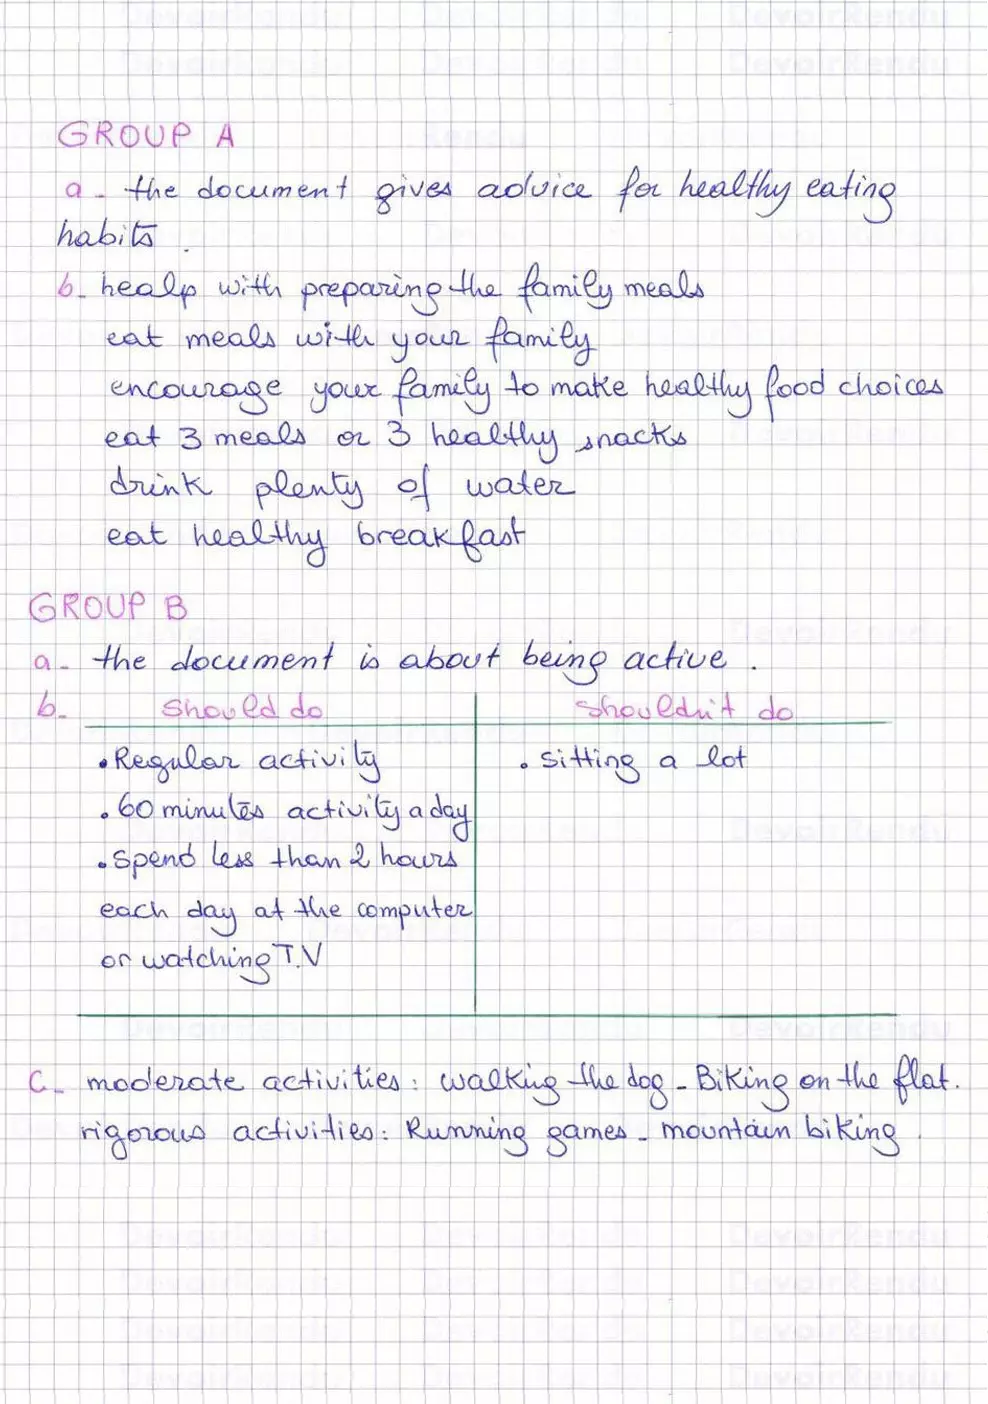 GROUP A
a - the document gives advice for healthy eating
habits .
b - healp with preparing the family meals
eat meals with your family
encourage your family to make healthy food choices
eat 3 meals or 3 healthy snacks
drink plenty of water
eat healthy breakfast
GROUP B
a - the document is about being active .
b - should do shouldn't do
• Regular activity • sitting a lot
• 60 minutes activity a day
• Spend less than 2 hours
each day at the computer
or watching T.V
C - moderate activities : walking the dog - Biking on the flat .
rigorous activities : Running games - mountain biking .